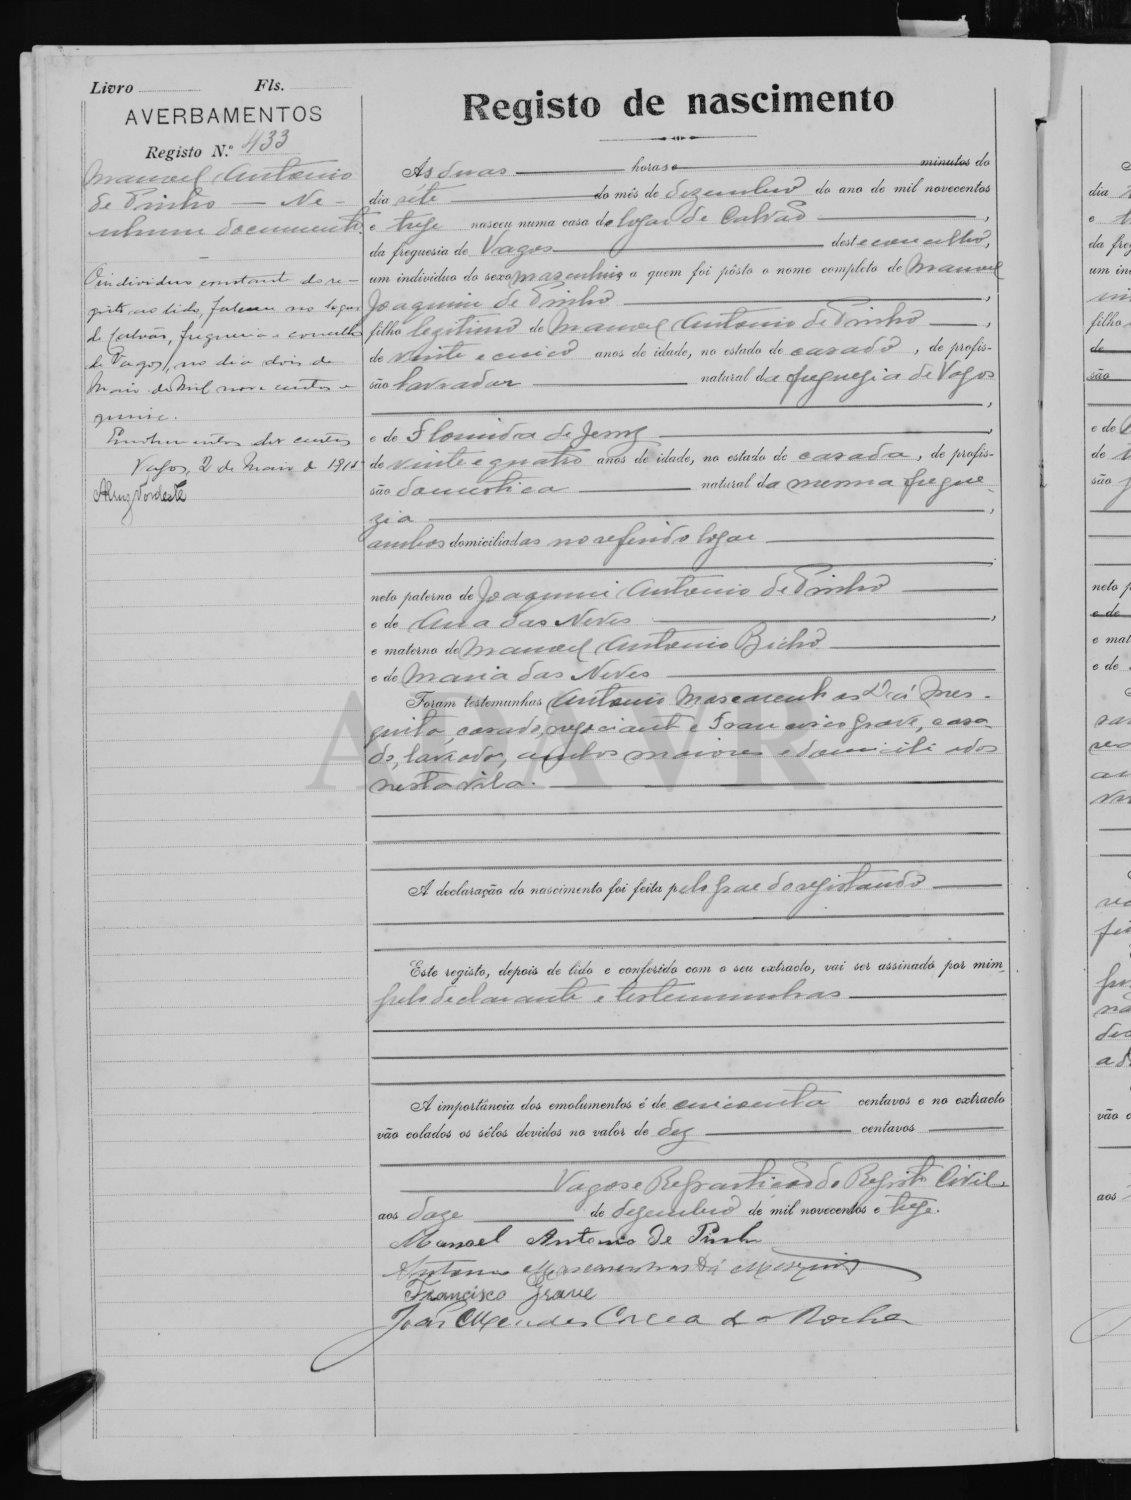 Livro Fls.
AVERBAMENTOS
Registo N.º 433
Manoel Antonio
de Pinho — Ne-
nhum documento.
O individuo constante do re-
gisto ao lado, faleceu no logar
de Calvão, freguesia e concelho
de Vagos, no dia dois de
Maio de mil nove centos e
quinze.
Emolumentos dez centos
Vagos, 2 de Maio de 1915
Registo de nascimento
As duas horas e minutos do
dia sete do mês de dezembro do ano de mil novecentos
e treze nasceu numa casa do logar de Calvão,
da freguesia de Vagos deste concelho,
um individuo do sexo masculino a quem foi pôsto o nome completo de Manoel
Joaquim de Pinho,
filho legitimo de Manoel Antonio de Pinho,
de vinte e cinco anos de idade, no estado de casado, de profis-
são lavrador natural da freguezia de Vagos
,
e de Flourinda de Jesus,
de vinte e quatro anos de idade, no estado de casada, de profis-
são domestica natural da mesma fregue-
zia,
ambos domiciliadas no referido logar
neto paterno de Joaquim Antonio de Pinho
e de Ana das Neves,
e materno de Manoel Antonio Bicho
e de Maria das Neves
Foram testemunhas Antonio Mascarenhas Dá Mes-
quita, casado, negociante e Francisco Grave, casa-
do, lavrador, ambos maiores e domiciliados
nesta vila.
A declaração do nascimento foi feita pelo pae do registando
Este registo, depois de lido e conferido com o seu extracto, vai ser assinado por mim,
pelo declarante e testemunhas
A importância dos emolumentos é de cincoenta centavos e no extracto
vão colados os sêlos devidos no valor de dez centavos
Vagos e Repartição do Registo Civil,
aos doze de dezembro de mil novecentos e treze.
Manoel Antonio de Pinho
Antonio Mascarenhas Dá Mesquita
Francisco Grave
João Mendes Correa da Rocha
ADAVR